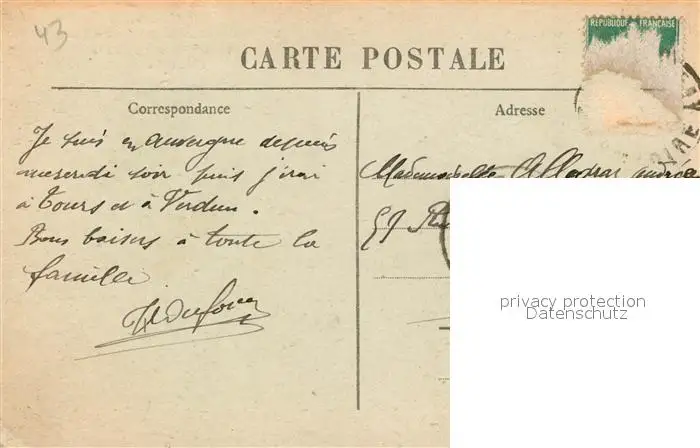 43
RÉPUBLIQUE FRANÇAISE
CARTE POSTALE
Correspondance
Adresse
Je suis en Auvergne depuis
mercredi soir puis j'irai
à Tours et à Verdun.
Bons baisers à toute la
famille
Mademoiselle
59 Rue
privacy protection
Datenschutz